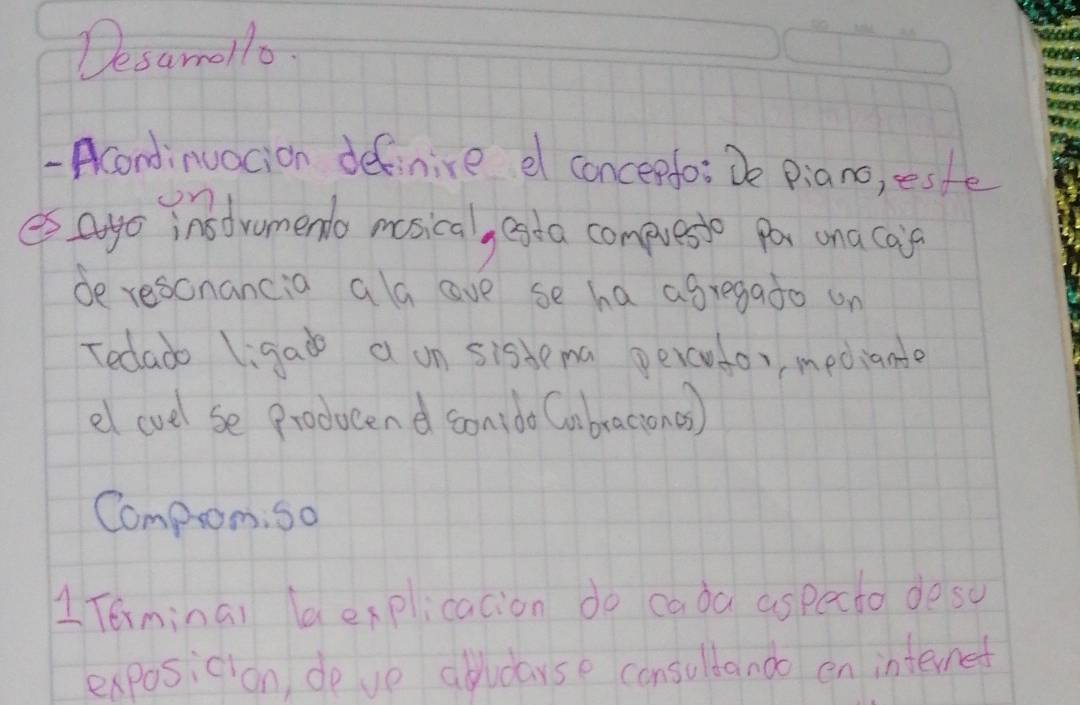 Desarrollo.
- Acondinuacion definire el concepto: De piano, este
un
es instrumento mosical, esta compuesto por una caja
de resonancia ala que se ha agregado un
Tedado ligado a un sistema percutor, mediante
el cuel se producen el sonido (vibraciones)
Compromiso
1 Terminar la explicacion de cada aspecto de su
exposicion, deve ayudarse consultando en internet